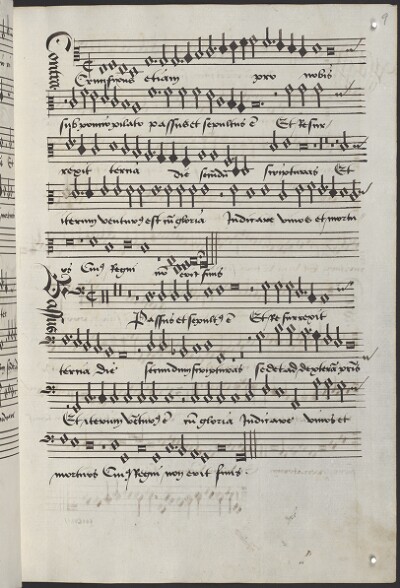 9
Contra
Crucifixus etiam pro nobis
sub poncio pilato passus et sepultus ē Et resur
rexit terna die secundū scripturas Et
iterum venturus est cū gloria Iudicare vivos et mortu
os Cui9 Regni nō erit finis
Bassus
Passus et sepult9 ē Et resurrexit
terna die secundum scripturas sedet ad dexterā pris
Et iterum vētur9 ē cū gloria Iudicare vivos et
mortuos Cui9 Regni non erit finis.